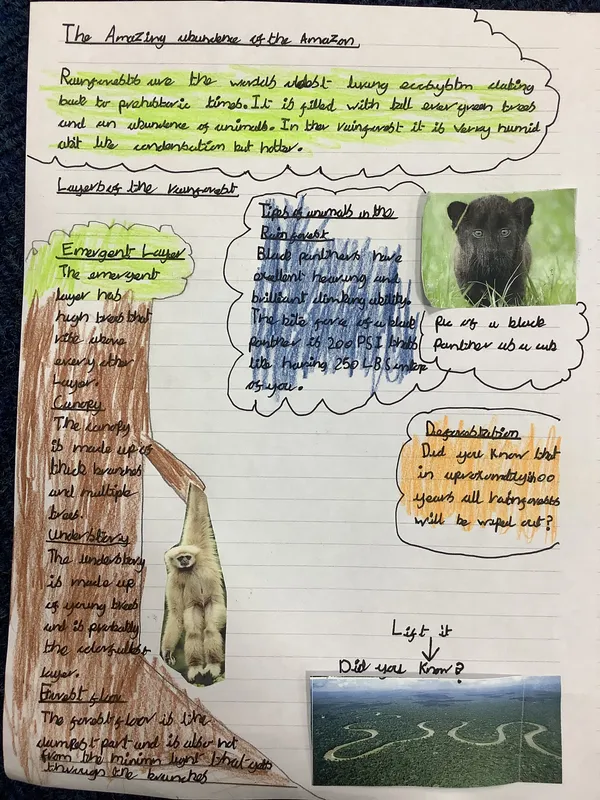 The Amazing abundance of the Amazon
Rainforests are the worlds oldest living ecosystem dating
back to prehistoric times. It is filled with tall ever green trees
and an abundance of animals. In the rainforest it is very humid
abit like condensation but hotter.
Layers of the rainforest
Emergent Layer
The emergent
layer has
high trees that
rise above
every other
layer.
Canopy
The canopy
is made up of
thick branches
and multiple
trees.
Understory
The understory
is made up
of young trees
and is probably
the
layer.
Forest floor
The forest floor is the
dampest part and is also hot
from the light that gets
through the branches
Tips of animals in the
Rainforest
Black panthers have
excellent hearing and
brilliant climbing ability.
The bite force of a black
panther is 200 PSI thats
like having 250 LBS
of you.
Pic of a black
Panther as a cub
Deforestation
Did you know that
in
years all rainforests
will be wiped out?
Lift it
Did you know?